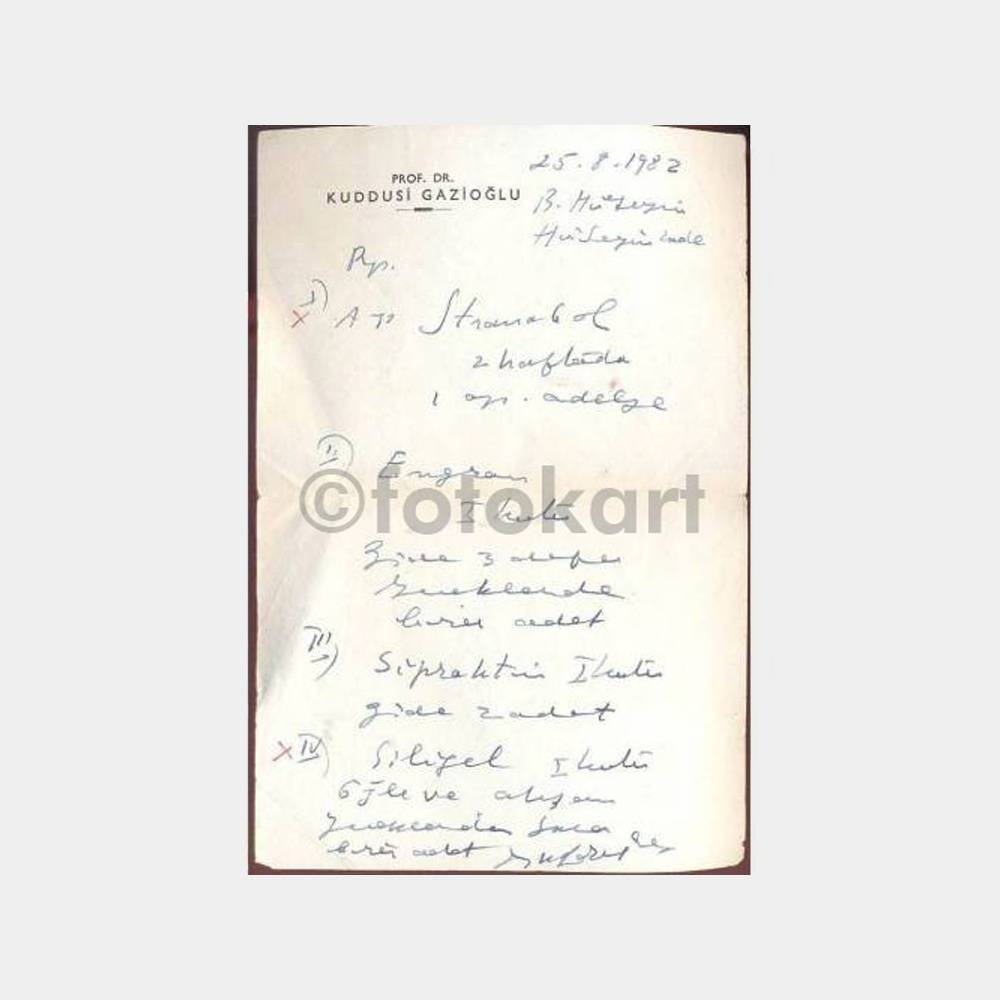 PROF. DR.
KUDDUSİ GAZİOĞLU
25.8.1982
B. Hüseyin
Hüseyinzade
Rp.
I)
x Amp Stranabol
2 haftada
1 amp. adeleye
II)
Engran
I kutu
©fotokart
Günde 3 defa
yemeklerde
birer adet
III) Sipraktin I kutu
günde 2 adet
x IV) Siligel I kutu
Öğle ve akşam
yemeklerden sonra
birer adet